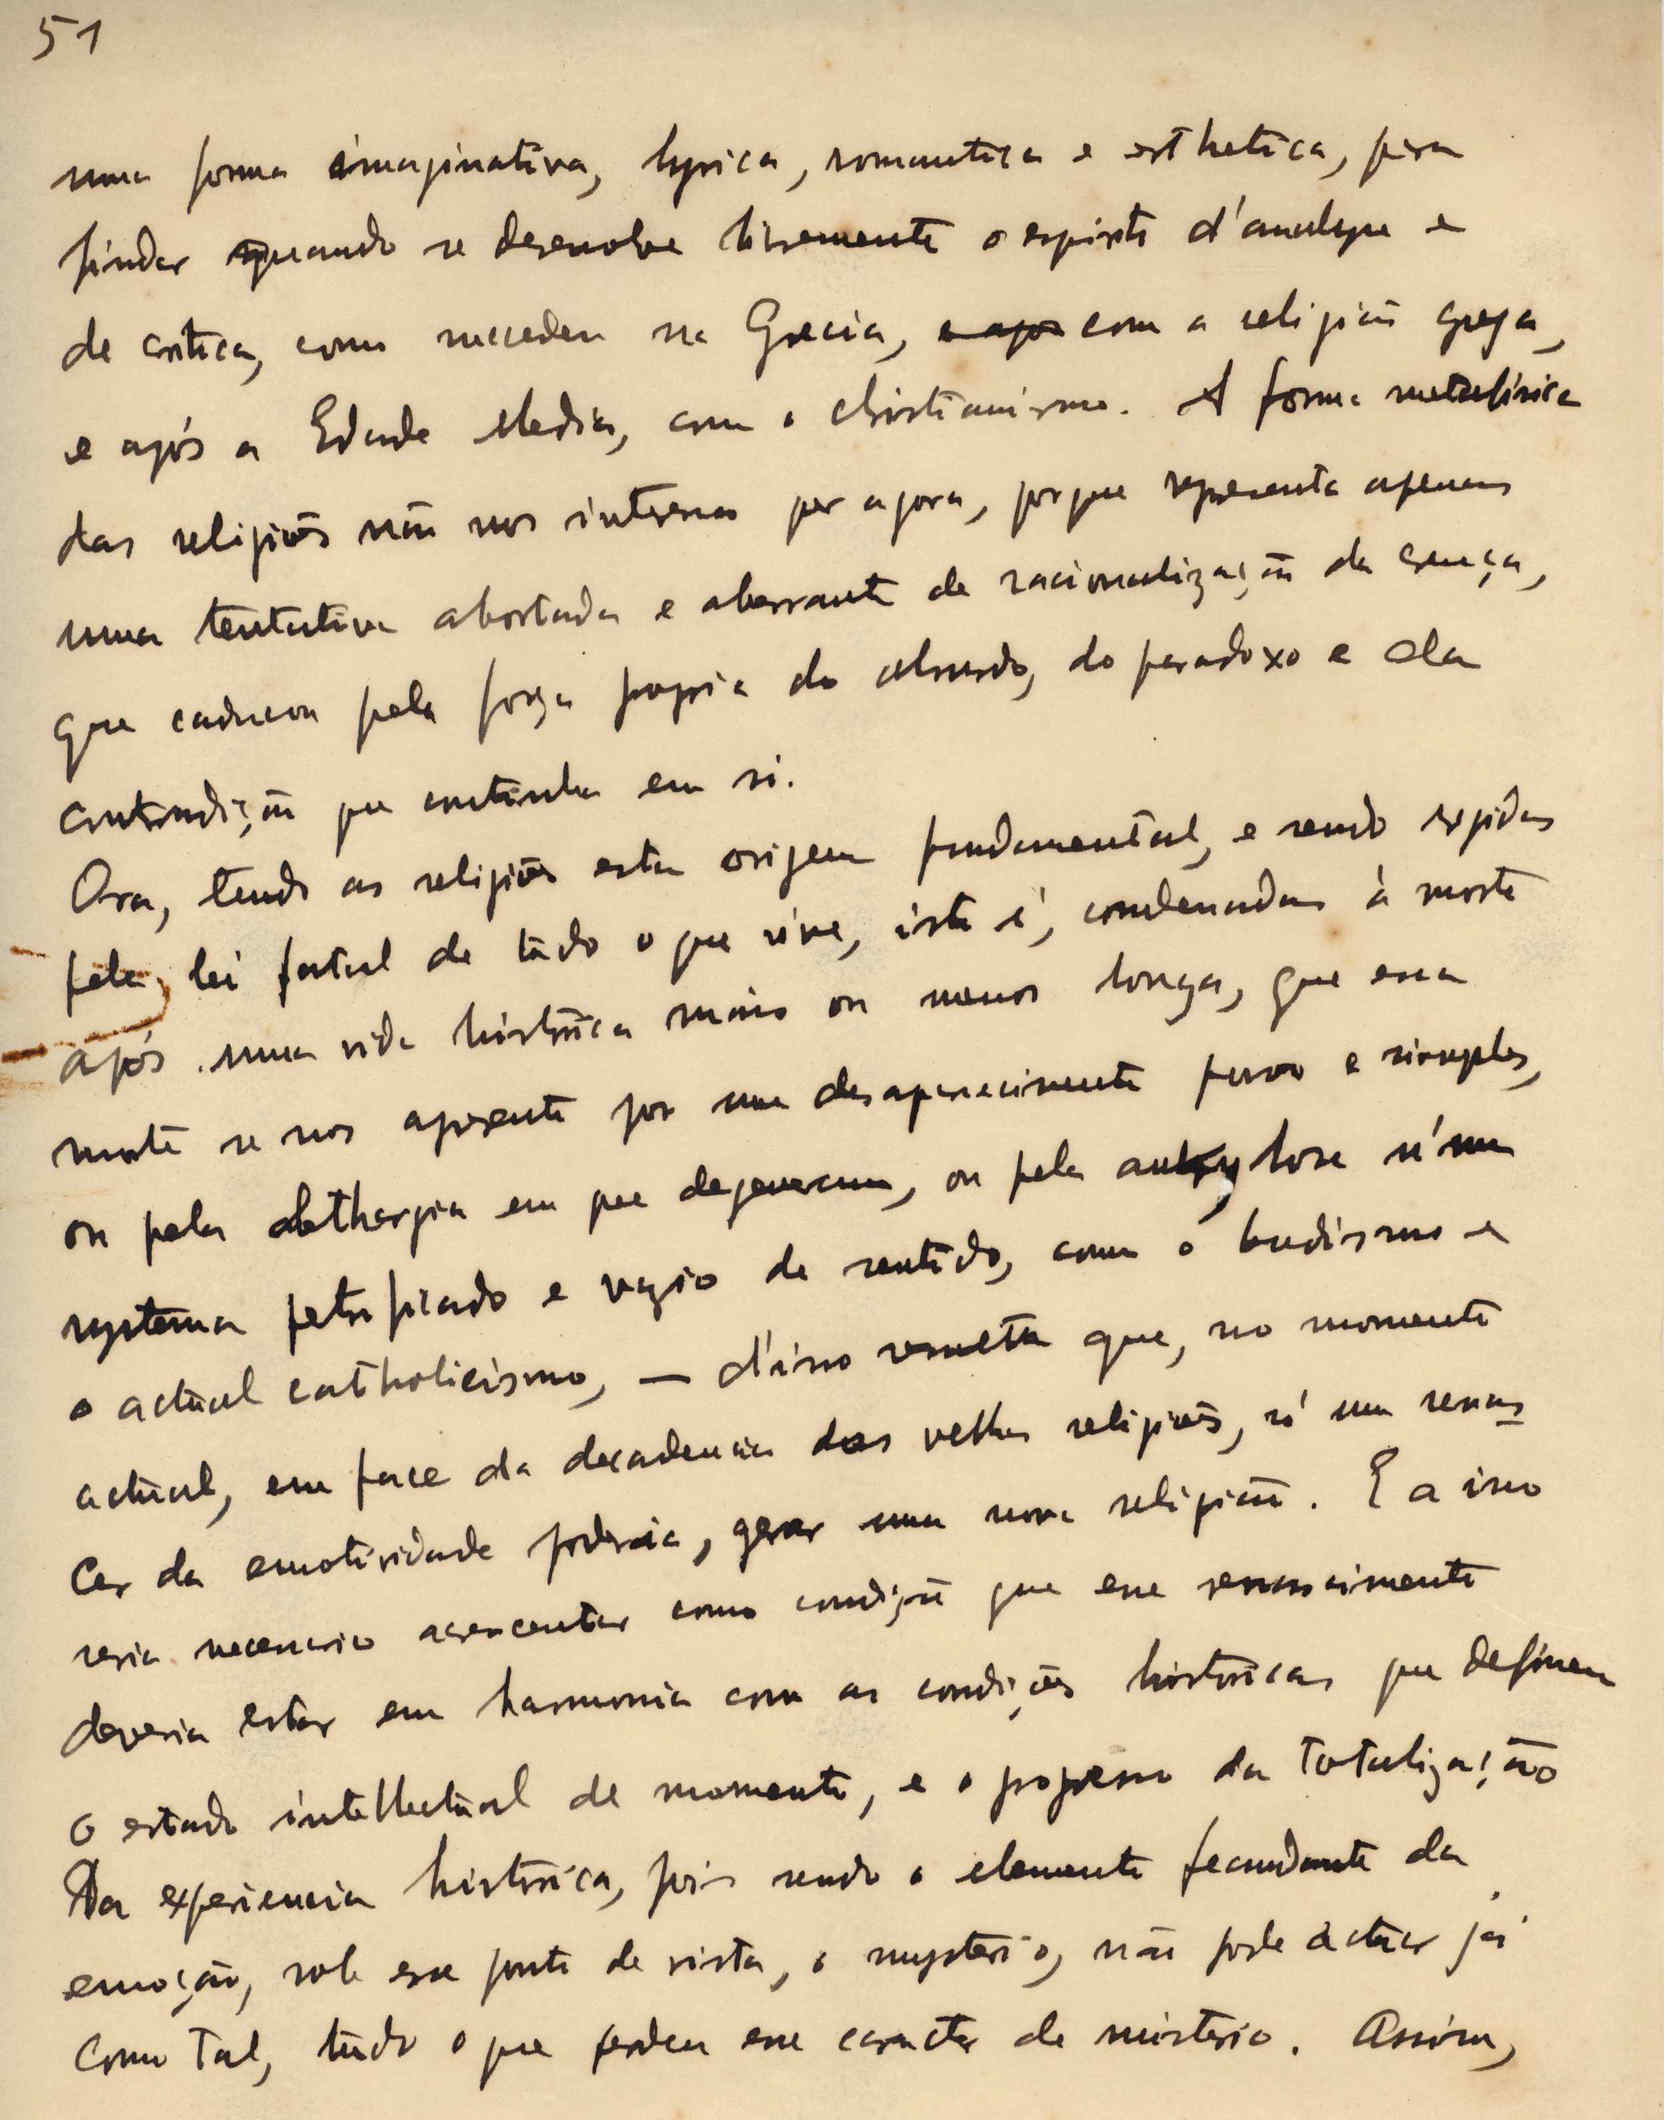 51
uma forma imaginativa, lyrica, romantica e esthetica, para
findar quando se desenvolve livremente o espirito d'analyse e
de critica, como succedeu na Grecia, e apos com a religião grega,
e após a Edade Media, com o christianismo. A forma metafisica
das religiões não nos interessa por agora, porque representa apenas
uma tentativa abortada e aberrante de racionalização da crença,
que caducou pela força propria do absurdo, do paradoxo e da
contradição que continha em si.
Ora, tendo as religiões esta origem fundamental, e sendo regidas
pela lei fatal de tudo o que vive, isto é, condenadas à morte
após uma vida histórica mais ou menos longa, que essa
morte se nos apresente por um desaparecimento puro e simples,
ou pela lethargia em que degeneram, ou pela ankylose n'um
systema petrificado e vazio de sentido, como o budismo e
o actual catholicismo, — d'isso resulta que, no momento
actual, em face da decadencia das velhas religiões, só um renas
cer da emotividade poderia, gerar uma nova religião. E a isso
seria necessario acrescentar como condição que esse renascimento
deveria estar em harmonia com as condições históricas que definem
o estado intellectual de momento, e o progresso da totalização
da experiencia histórica, pois sendo o elemento fecundante da
emoção, sob esse ponto de vista, o mysterio, não pode actuar já
como tal, tudo o que perdeu esse caracter de misterio. Assim,